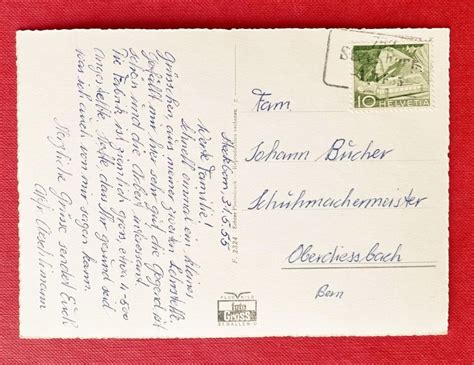 Steckborn 31.5.55
Werte Familie!
Schnell einmal ein kleines
Grüsschen, aus meiner zweiten Lehrstelle.
Gefällt mir hier sehr gut, die Gegend ist
schön und die Arbeit interessant.
Die Fabrik ist ziemlich gross, etwa 4-500
Angestellte. Hoffe dass Ihr gesund seid
was ich auch von mir sagen kann.
Herzliche Grüsse sendet Euch
Aeschlimann
10 HELVETIA
Fam.
Johann Bücher
Schuhmachermeister
Oberdiessbach
Bern
Foto
Gross
ST.GALLEN-O